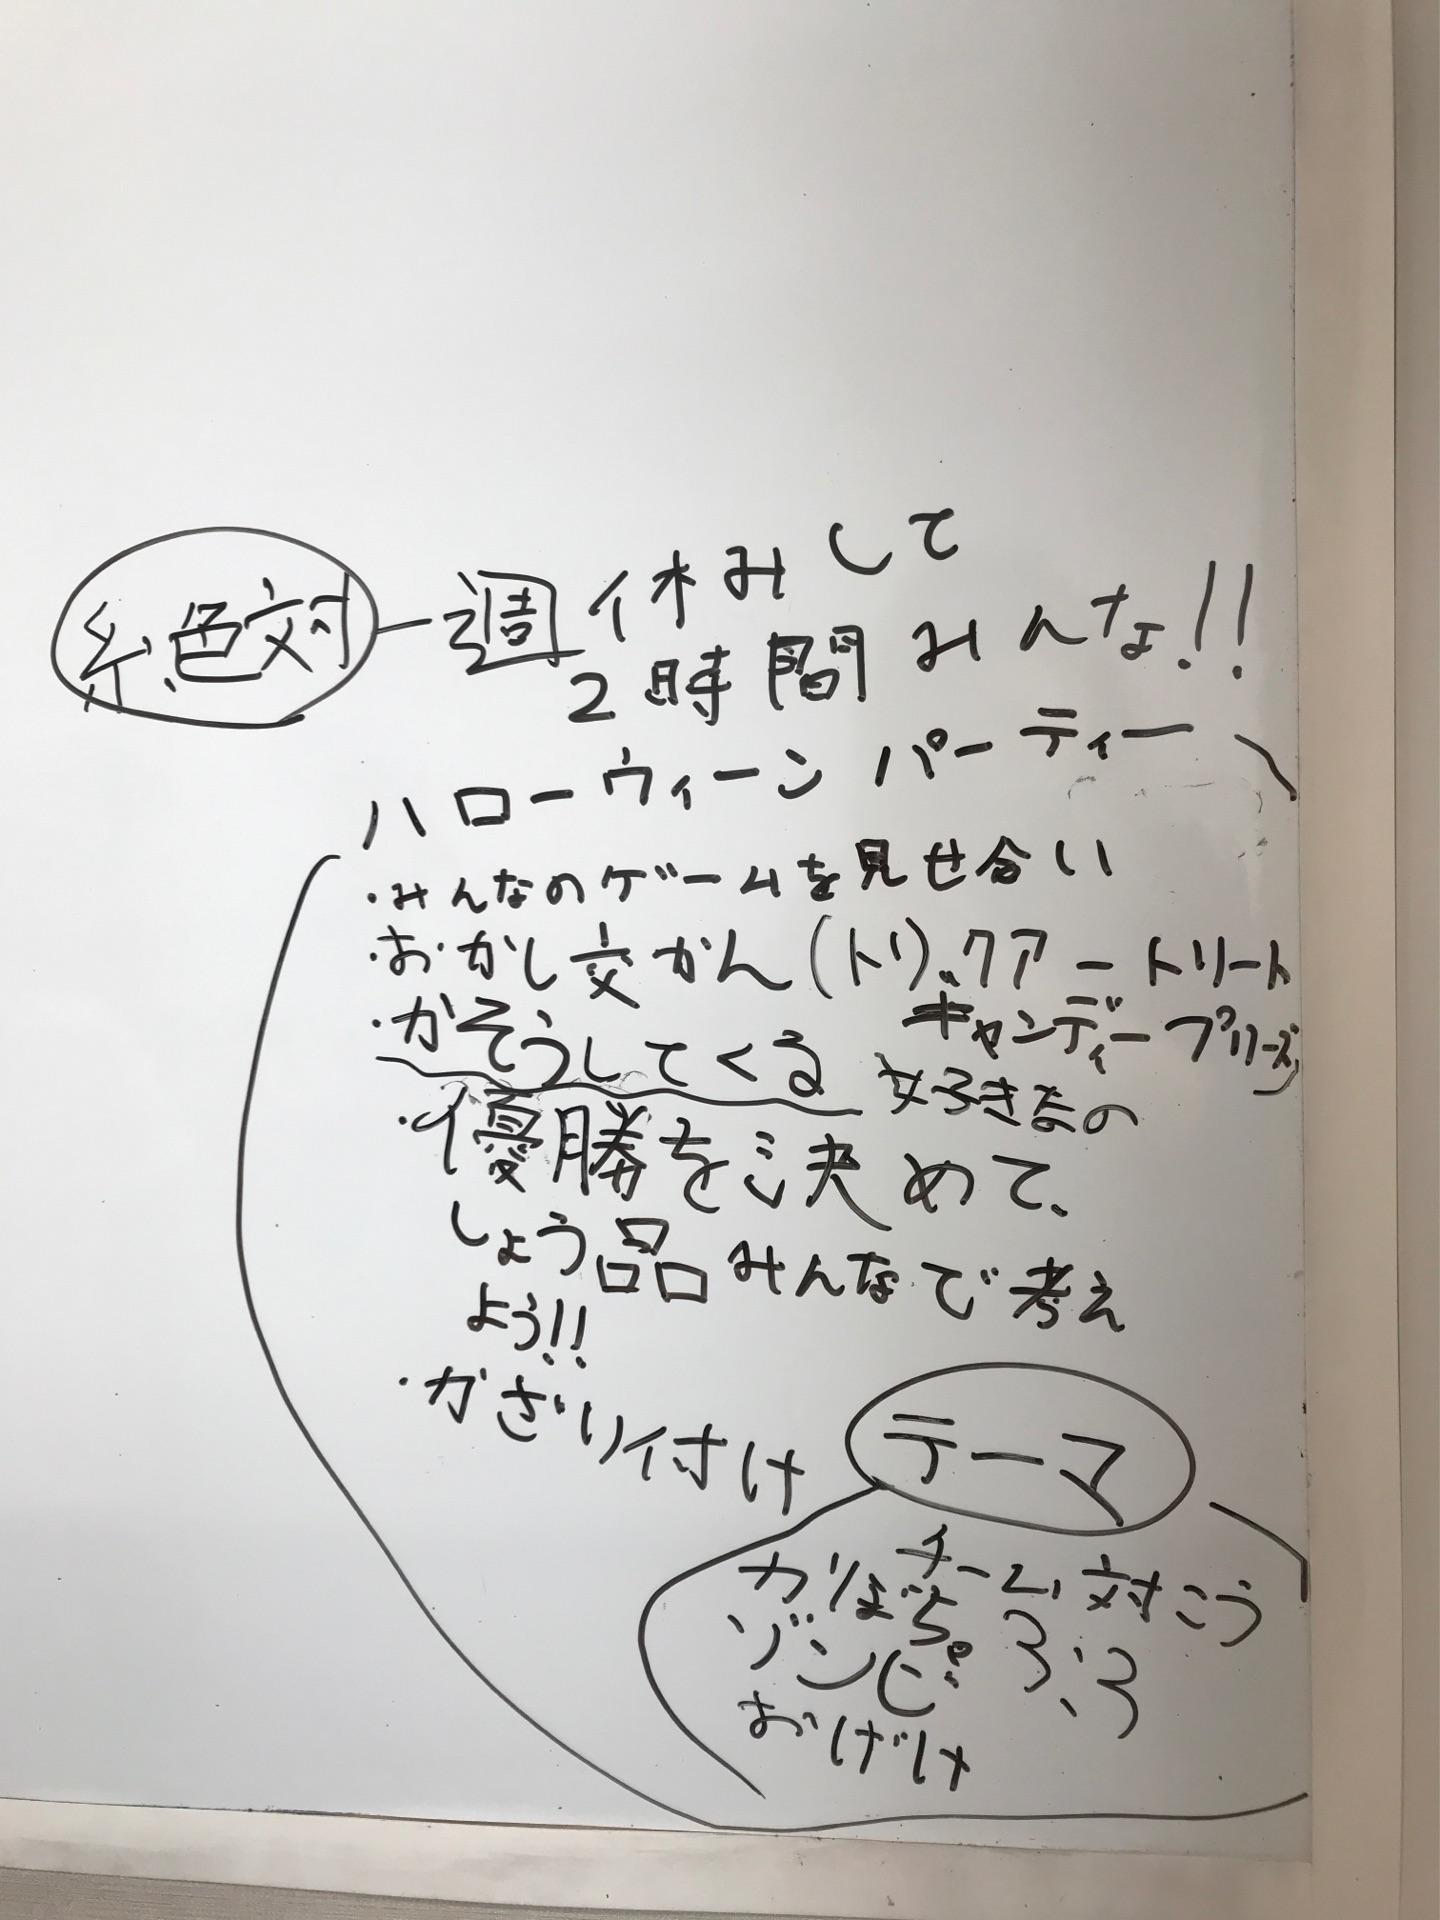 絶対 一週休みして
2時間みんな!!
ハローウィーンパーティー
・みんなのゲームを見せ合い
・おかし交かん(トリックアートリート
キャンディープリーズ)
・かそうしてくる 好きなの
・優勝を決めて、
しょう品みんなで考え
よう!!
・かざり付け
テーマ
チーム対こう
かぼちゃ
ゾンビ
おばけ